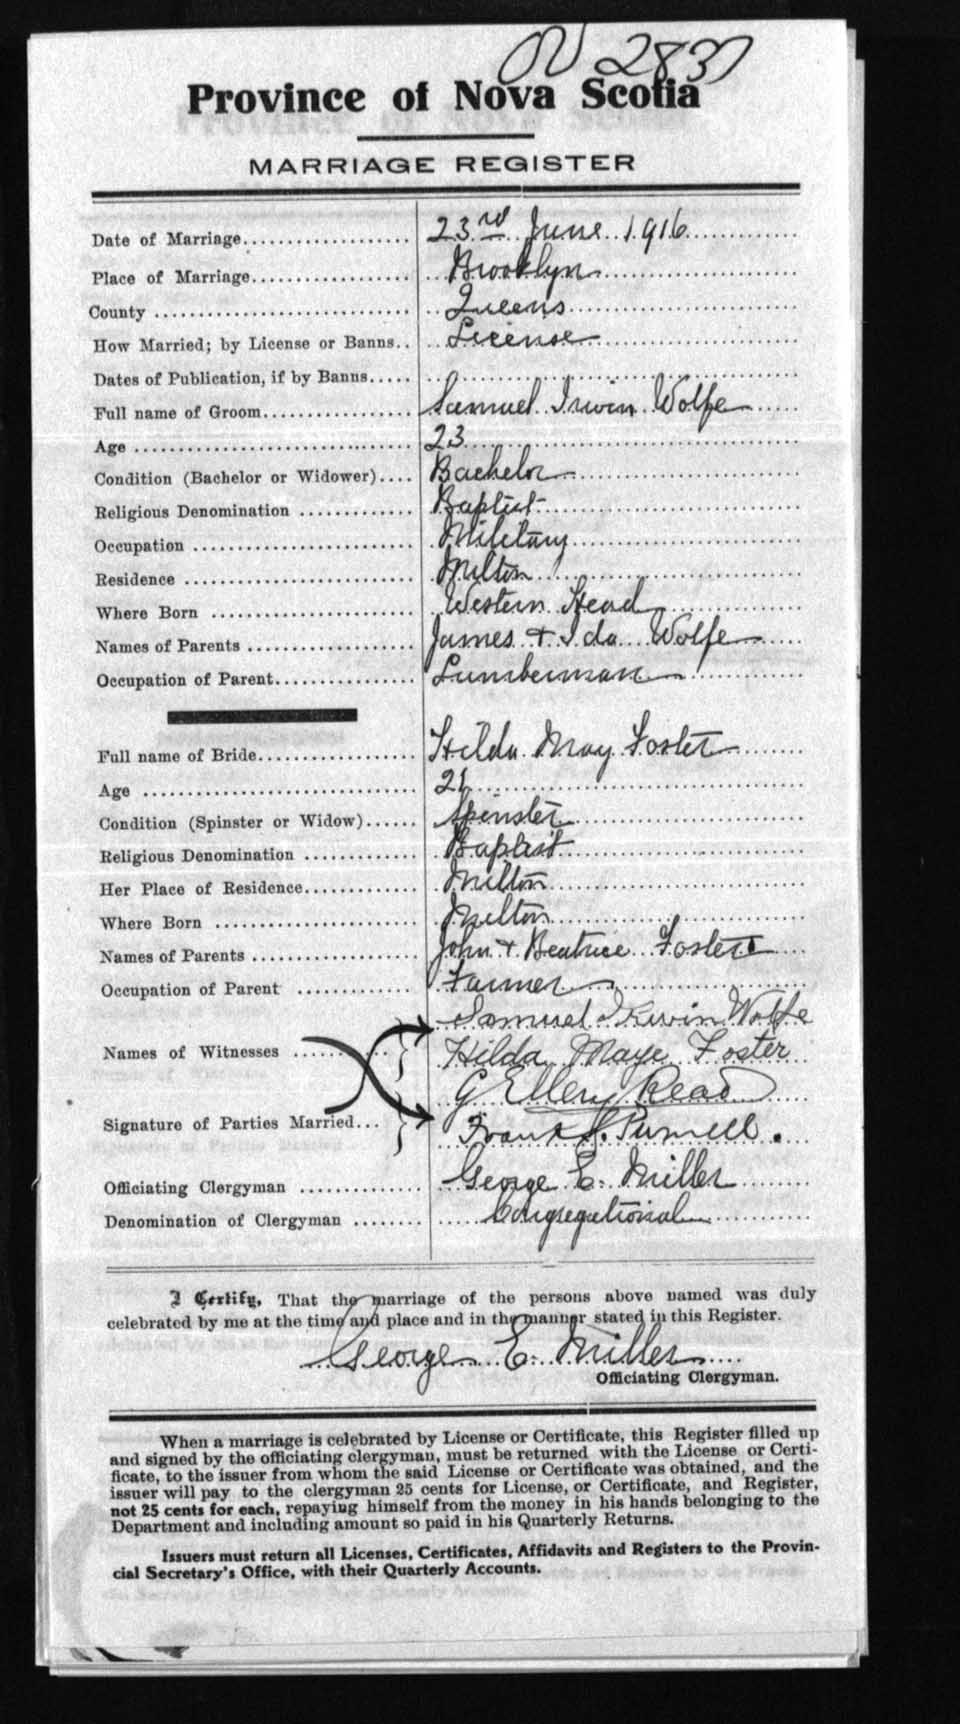 2837
Province of Nova Scotia
MARRIAGE REGISTER
Date of Marriage.................... 23rd June 1916
Place of Marriage................... Brooklyn
County .............................. Queens
How Married; by License or Banns.. License
Dates of Publication, if by Banns.....
Full name of Groom.................. Samuel Irwin Wolfe
Age ................................. 23
Condition (Bachelor or Widower).... Bachelor
Religious Denomination ............. Baptist
Occupation .......................... Military
Residence ........................... Milton
Where Born ........................ Western Head
Names of Parents .................... James & Ida Wolfe
Occupation of Parent................. Lumberman
Full name of Bride................... Hilda May Foster
Age ................................. 21
Condition (Spinster or Widow)...... Spinster
Religious Denomination ............. Baptist
Her Place of Residence............. Milton
Where Born ........................ Milton
Names of Parents .................... John & Beatrice Foster
Occupation of Parent ............. Farmer
Samuel Irwin Wolfe
Names of Witnesses ............ Hilda Maye Foster
G Ellery Read
Signature of Parties Married... Frank S. Purnell.
Officiating Clergyman ............... George E. Miller
Denomination of Clergyman ........ Congregational
I Certify, That the marriage of the persons above named was duly
celebrated by me at the time and place and in the manner stated in this Register.
George E. Miller
Officiating Clergyman.
When a marriage is celebrated by License or Certificate, this Register filled up
and signed by the officiating clergyman, must be returned with the License or Certi-
ficate, to the issuer from whom the said License or Certificate was obtained, and the
issuer will pay to the clergyman 25 cents for License, or Certificate, and Register,
not 25 cents for each, repaying himself from the money in his hands belonging to the
Department and including amount so paid in his Quarterly Returns.
Issuers must return all Licenses, Certificates, Affidavits and Registers to the Provin-
cial Secretary's Office, with their Quarterly Accounts.